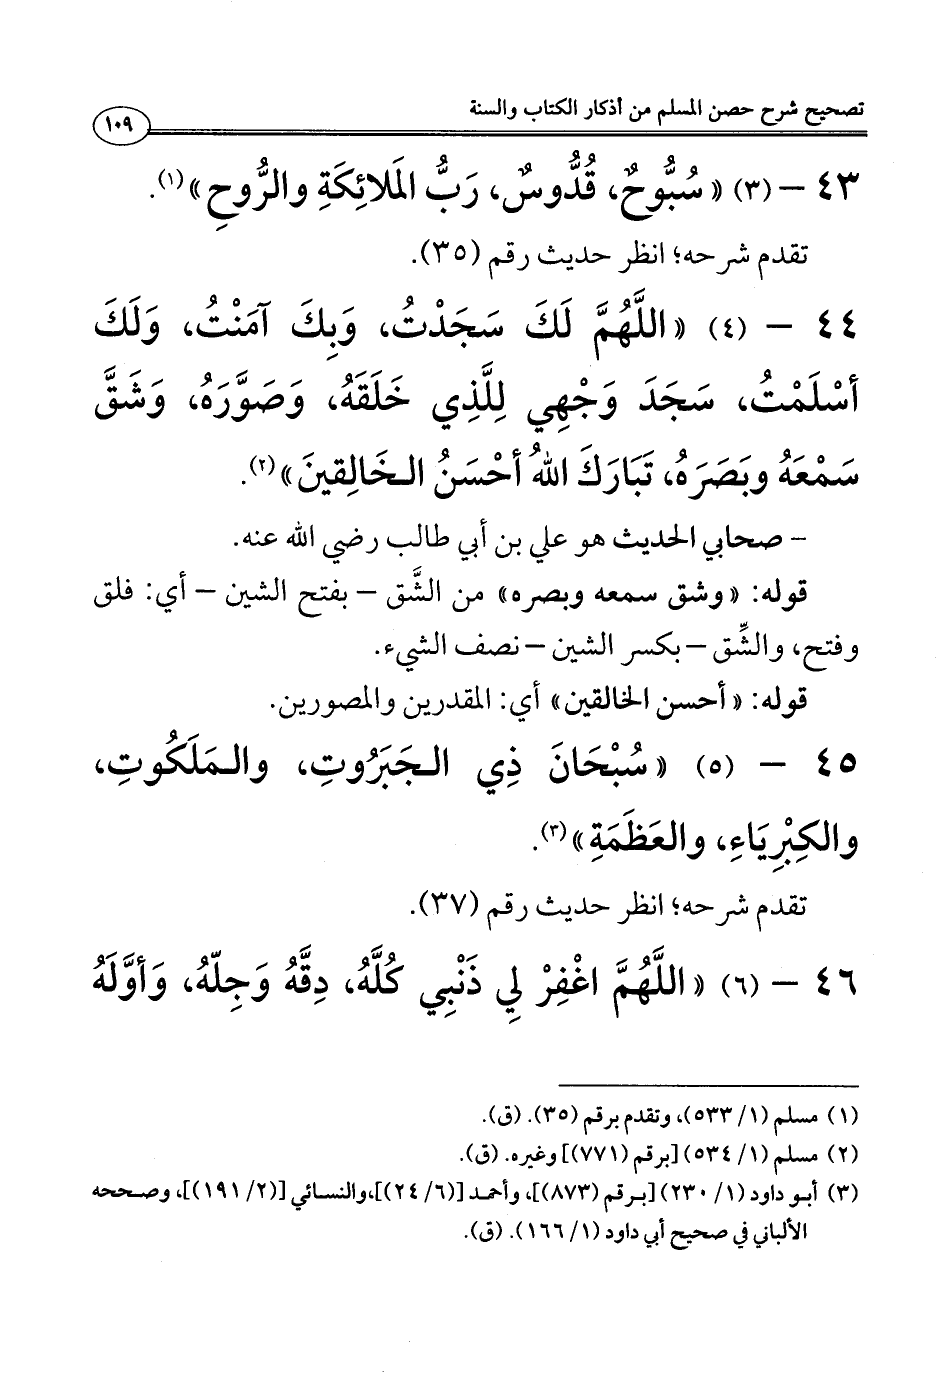 تصحيح شرح حصن المسلم من أذكار الكتاب والسنة
١٠٩
٤٣ – (٣) «سُبُّوحٌ، قُدُّوسٌ، رَبُّ المَلائِكَةِ والرُّوحِ»(١).
تقدم شرحه؛ انظر حديث رقم (٣٥).
٤٤ – (٤) «اللَّهُمَّ لَكَ سَجَدْتُ، وَبِكَ آمَنْتُ، وَلَكَ
أسْلَمْتُ، سَجَدَ وَجْهِي لِلَّذِي خَلَقَهُ، وَصَوَّرَهُ، وَشَقَّ
سَمْعَهُ وبَصَرَهُ، تَبَارَكَ اللهُ أحْسَنُ الـخَالِقينَ»(٢).
– صحابي الحديث هو علي بن أبي طالب رضي الله عنه.
قوله: «وشق سمعه وبصره» من الشَّق – بفتح الشين – أي: فلق
وفتح، والشِّق – بكسر الشين – نصف الشيء.
قوله: «أحسن الخالقين» أي: المقدرين والمصورين.
٤٥ – (٥) «سُبْحَانَ ذِي الـجَبَرُوتِ، والـمَلَكُوتِ،
والكِبْرِيَاءِ، والعَظَمَةِ»(٣).
تقدم شرحه؛ انظر حديث رقم (٣٧).
٤٦ – (٦) «اللَّهُمَّ اغْفِرْ لِي ذَنْبِي كُلَّهُ، دِقَّهُ وَجِلّهُ، وَأوَّلَهُ
(١) مسلم (١/ ٥٣٣)، وتقدم برقم (٣٥). (ق).
(٢) مسلم (١/ ٥٣٤) [برقم (٧٧١)] وغيره. (ق).
(٣) أبو داود (١/ ٢٣٠) [برقم (٨٧٣)]، وأحمد [(٦/ ٢٤)]،والنسائي [(٢/ ١٩١)]، وصححه
الألباني في صحيح أبي داود (١/ ١٦٦). (ق).